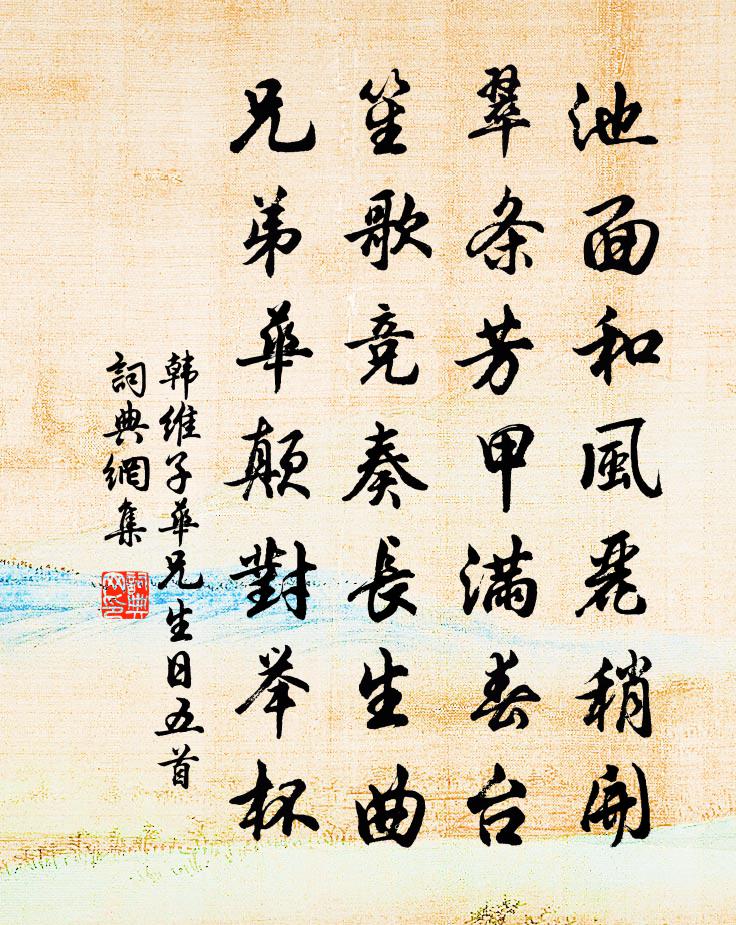 池面和風麗稍開
翠条芳甲滿春台
笙歌竞奏長生曲
兄弟華颠對举杯
韩維子華兄生日五首
詞典網集